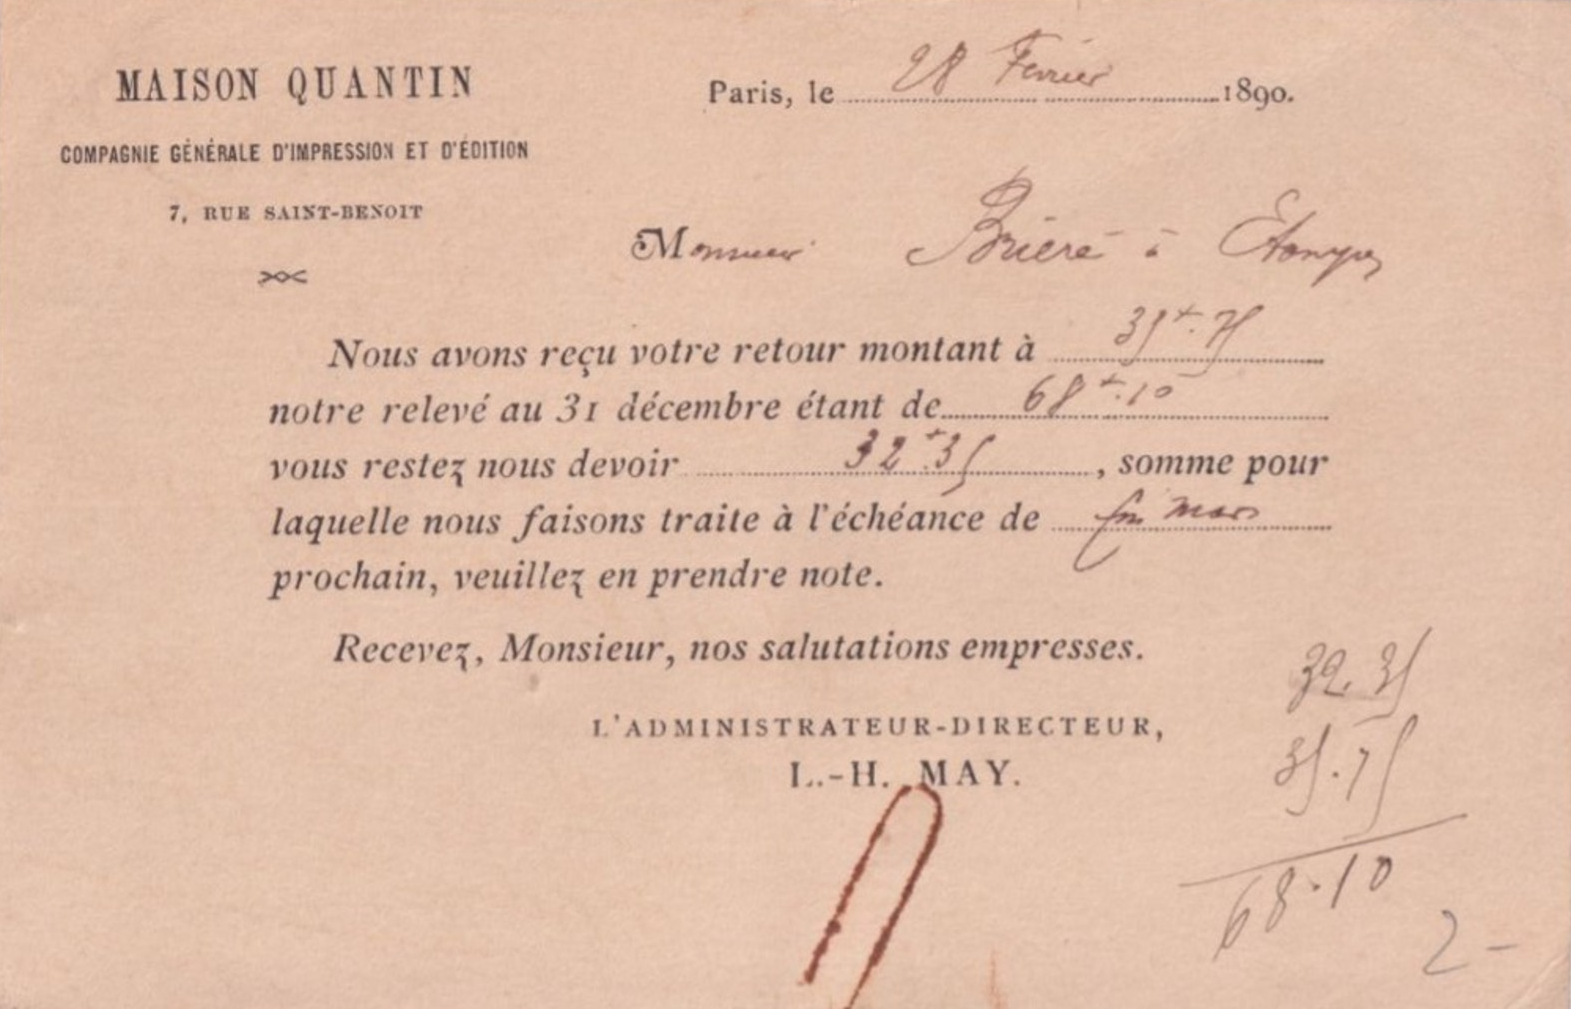 MAISON QUANTIN
COMPAGNIE GÉNÉRALE D'IMPRESSION ET D'ÉDITION
7, RUE SAINT-BENOIT
Paris, le 28 Fevrier 1890.
Monsieur Brieré à Etampes
Nous avons reçu votre retour montant à 35f.75
notre relevé au 31 décembre étant de 68f.10
vous restez nous devoir 32f.35, somme pour
laquelle nous faisons traite à l'échéance de fin mars
prochain, veuillez en prendre note.
Recevez, Monsieur, nos salutations empresses.
L'ADMINISTRATEUR-DIRECTEUR,
L.-H. MAY.
32.35
35.75
68.10
2-